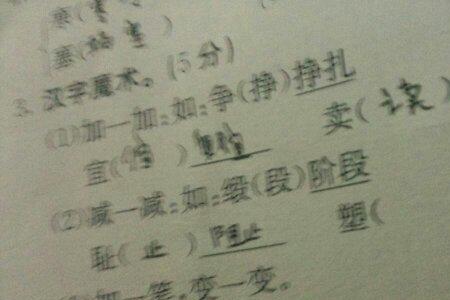 寒(
塞(
3. 汉字魔术。(5分)
(1)加一加:如:争(挣)挣扎
宣( ) 卖(读)
(2)减一减:如:缎(段)阶段
耻(止)阻止 塑(
加一笔,变一变。